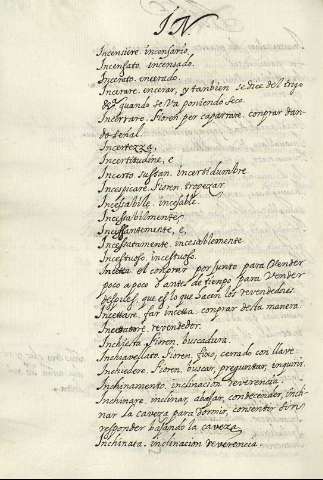 IN
Incensiere. incensario.
Incensato. incensado.
Incerato. encerado.
Incerare. encerar, y tambien se dice del trigo
quando se va poniendo seco.
Incerrare. Fioren. per caparrare. comprar dan-
do señal.
Incertezza,
Incertitudine, e
Incerto. sustan. incertidumbre
Incespicare. Fioren. tropezar
Incessabile. incesable.
Incessabilmente,
Incessantemente, e,
Incessatamente. incesablemente
Incestuoso. incestuoso.
Incetta. el comprar por junto para vender
poco a poco o antes de tiempo para vender
despues, que es lo que hacen los revendedores.
Incettare. far incetta. comprar desta manera.
Incettatore. revendedor.
Inchiesta. Fioren. buscadura.
Inchiavellato. Fioren. fixo, cerrado con llave.
Inchiedere. Fioren. buscar, preguntar, inquirir.
Inchinamento. inclinacion reverencia.
Inchinare. inclinar, abajar, condecender, incli-
nar la caveza para dormir, consentir o
responder bajando la caveza
Inchinata. inclinacion reverencia.